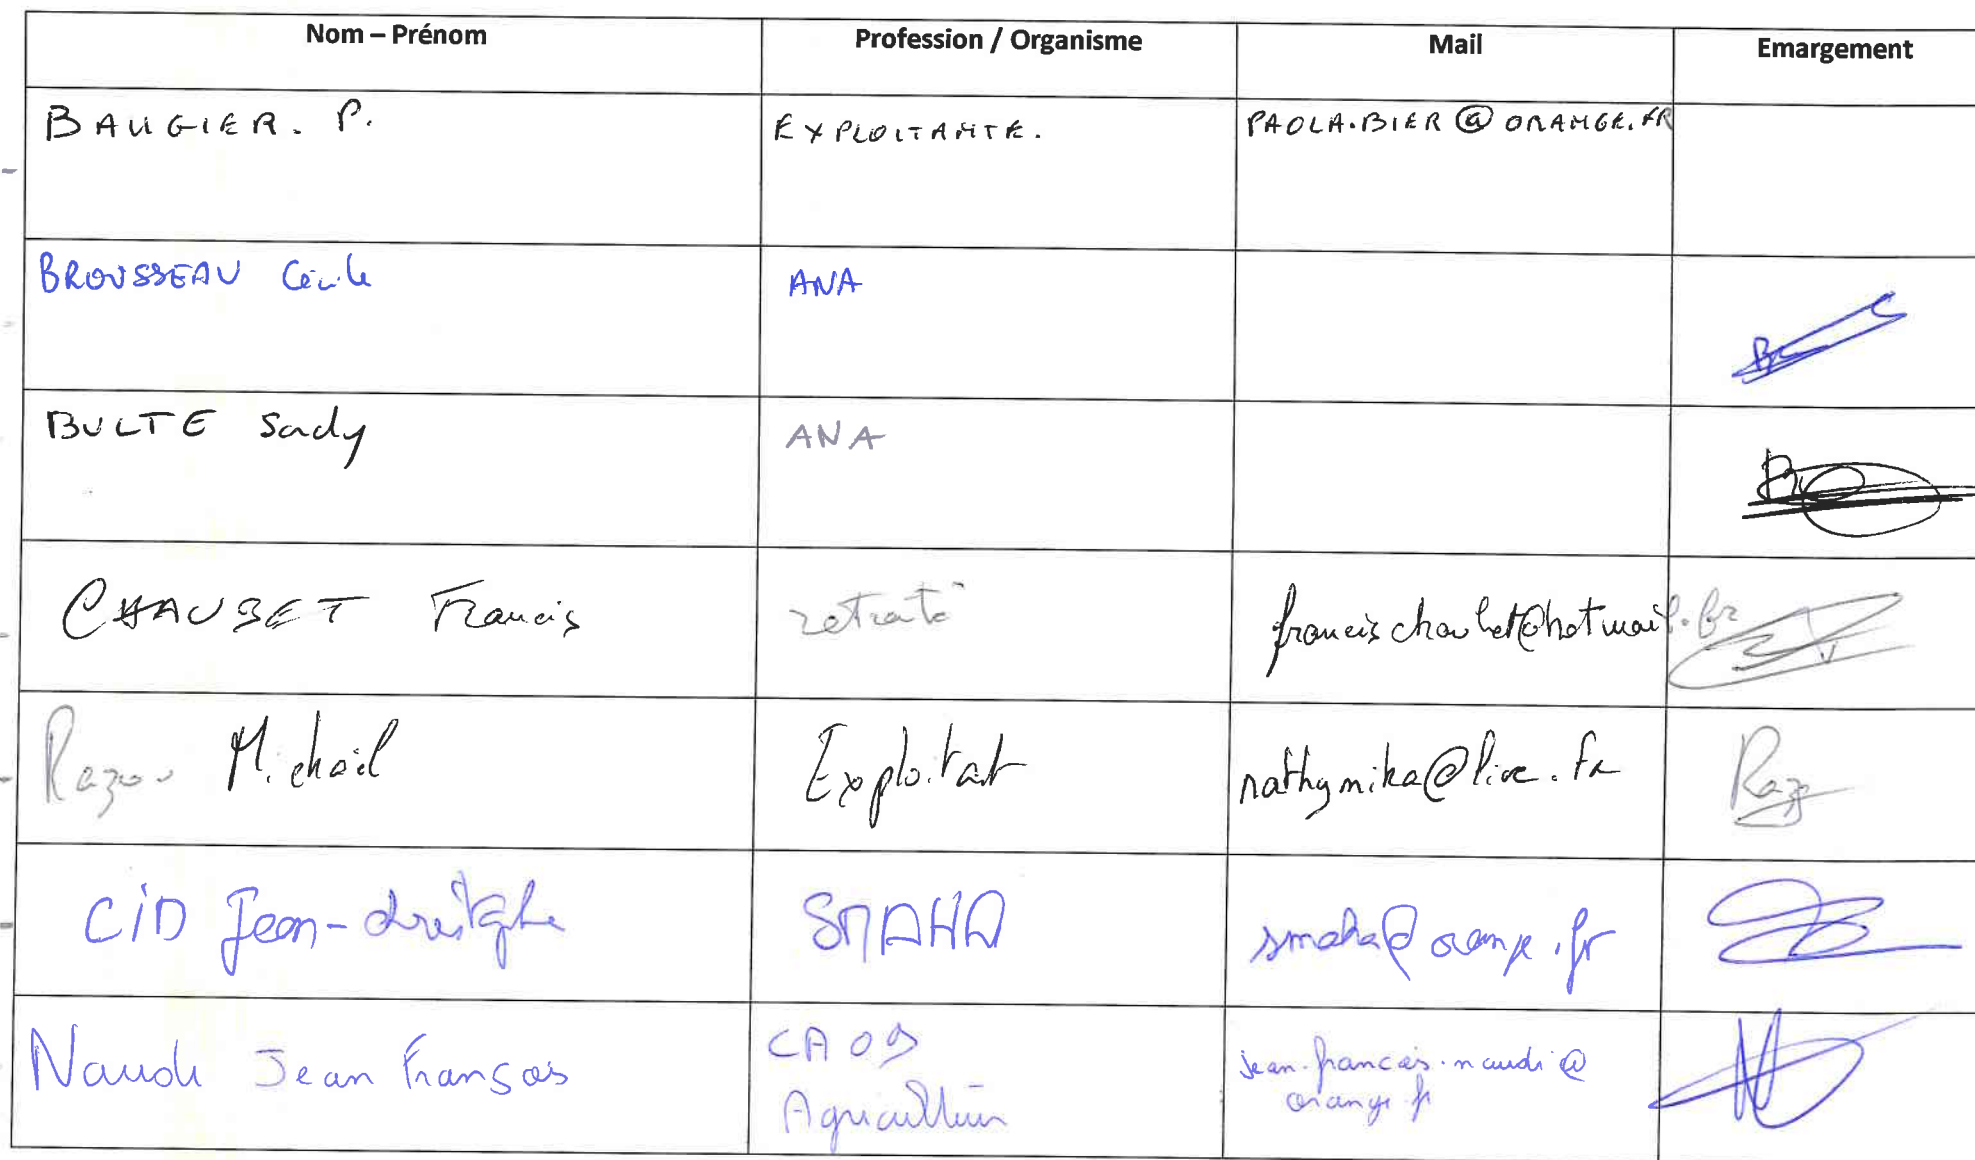 Nom – Prénom Profession / Organisme Mail Emargement
BAUGIER. P. EXPLOITANTE. PAOLA.BIER@ORANGE.FR
BROUSSEAU Cécile ANA
BULTE Sady ANA
CHAUBET Francis retraité francischaubet@hotmail.fr
Michaël Exploitant nathymika@live.fr
CiD Jean-christophe SMAHA smaha@orange.fr
Naudi Jean François CA 09 jean-francois.naudi@
Agriculteur orange.fr